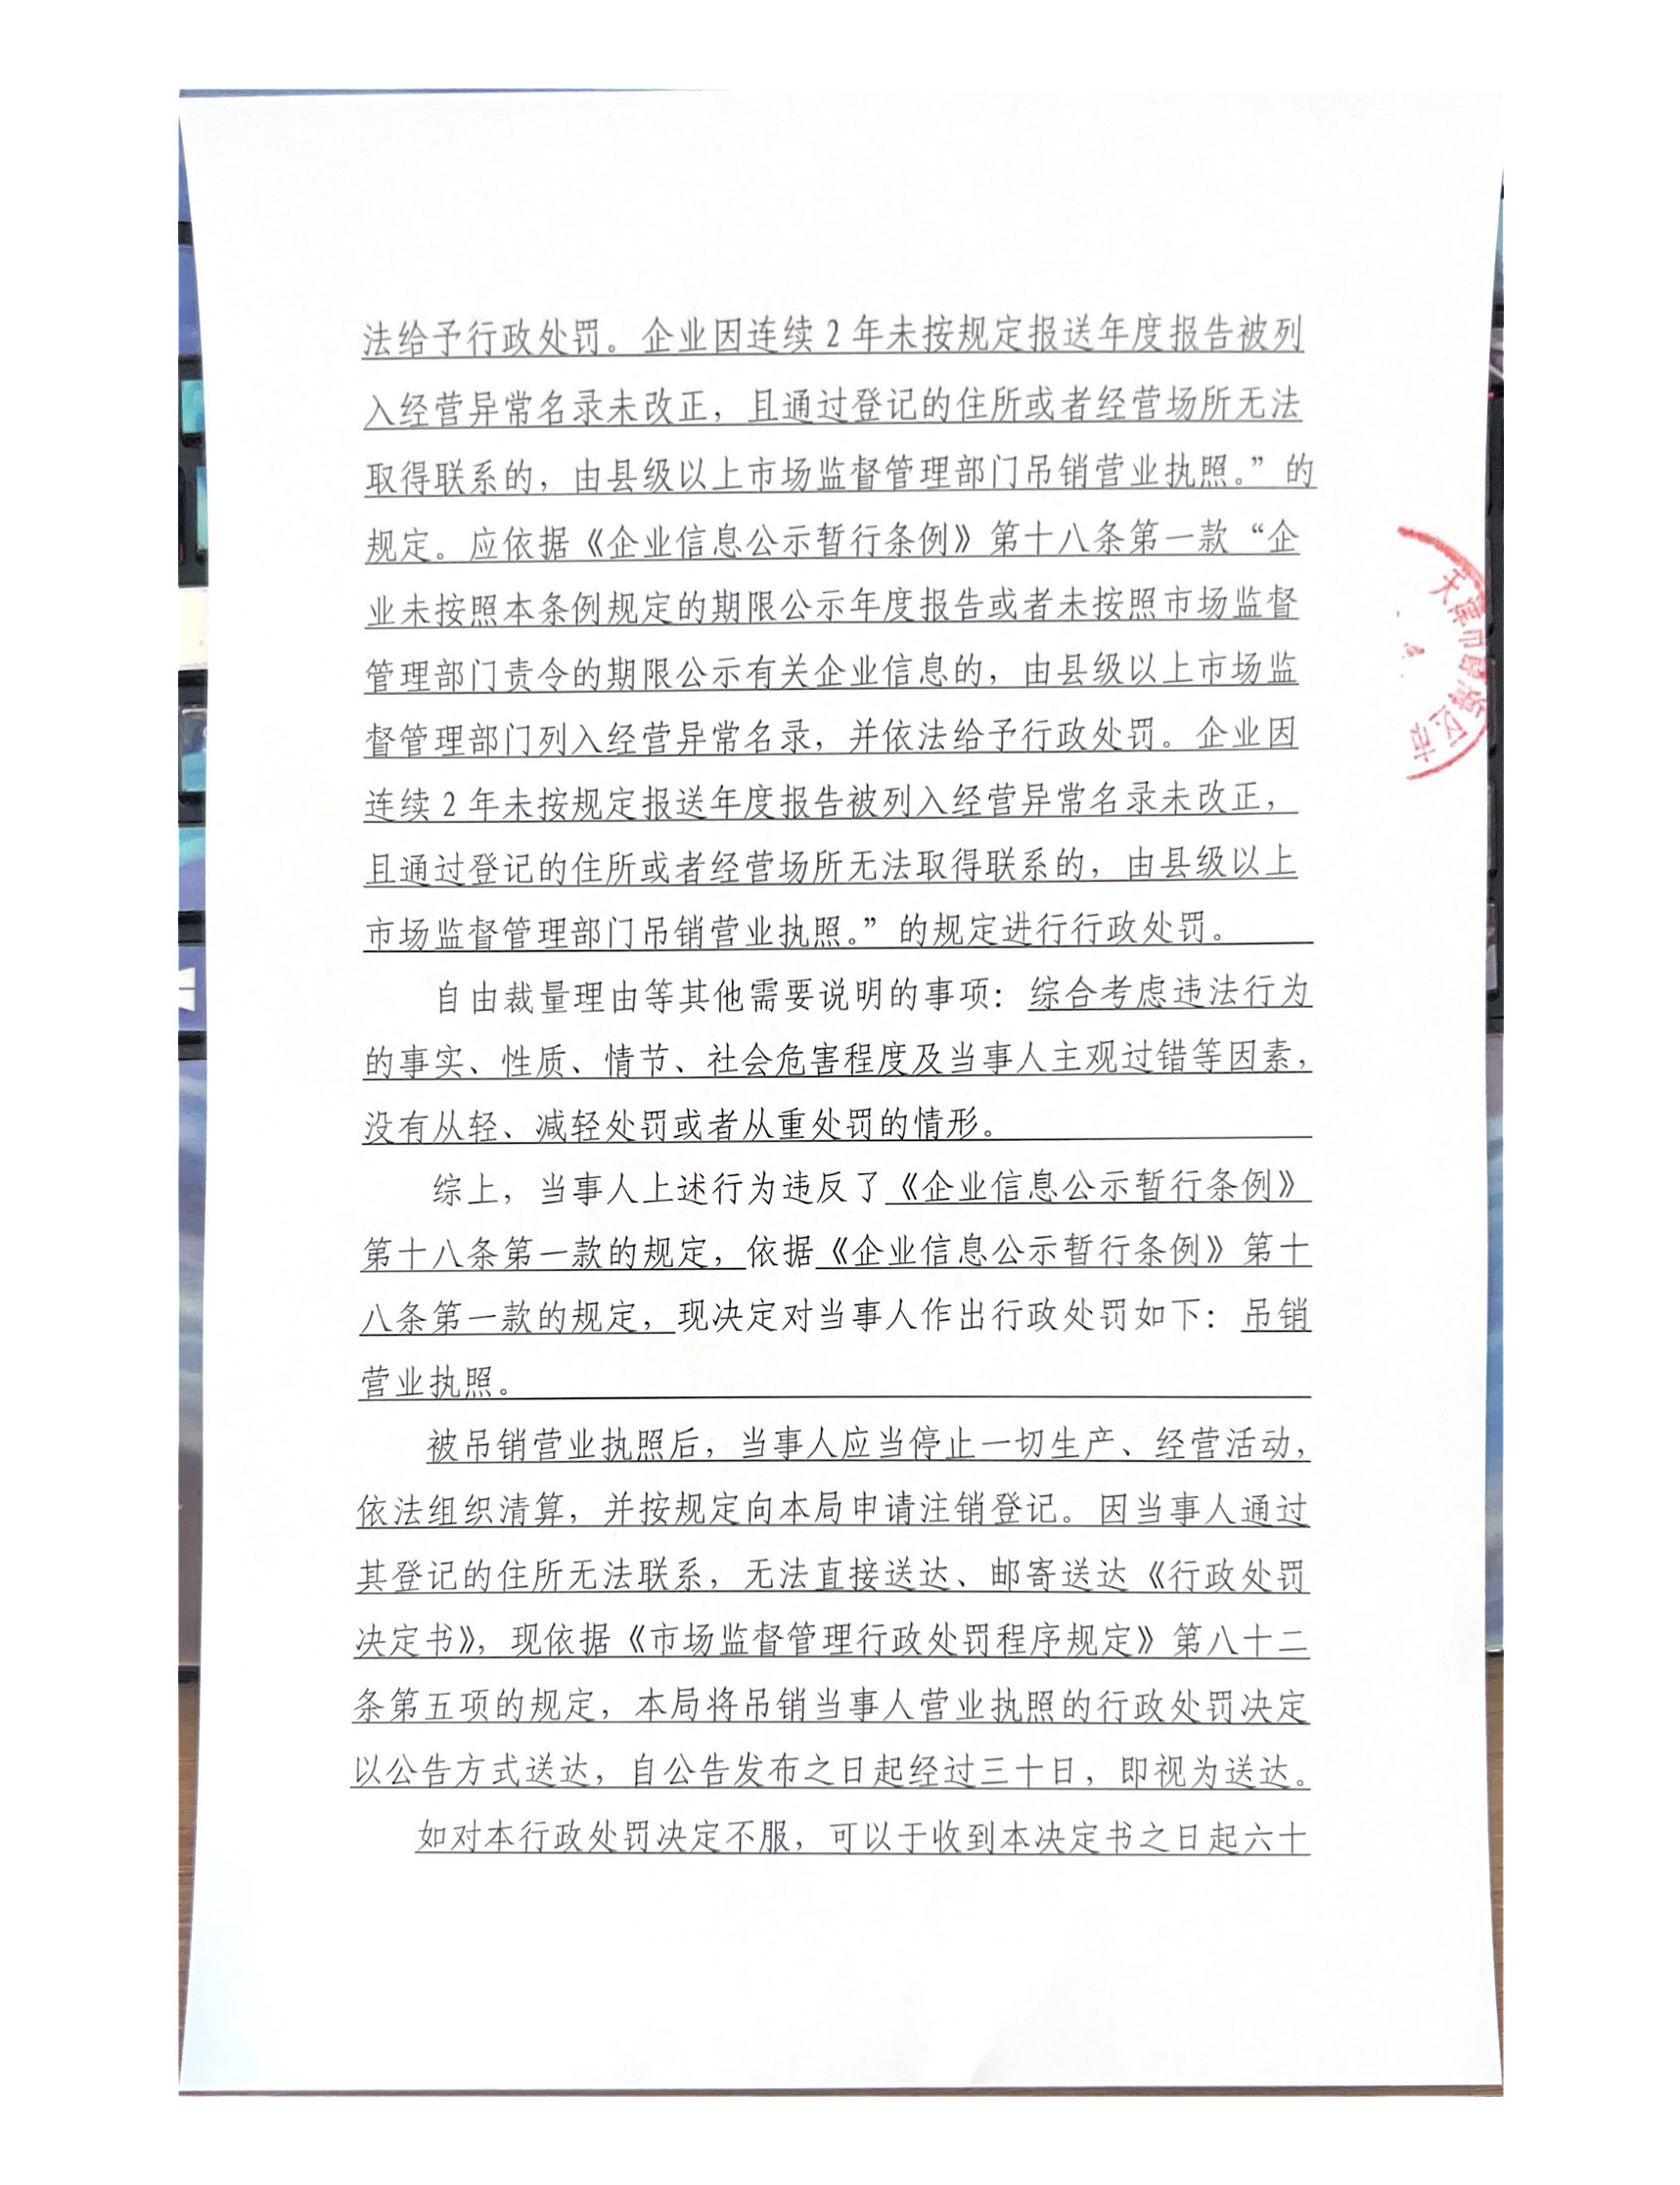 法给予行政处罚。企业因连续2年未按规定报送年度报告被列
入经营异常名录未改正，且通过登记的住所或者经营场所无法
取得联系的，由县级以上市场监督管理部门吊销营业执照。”的
规定。应依据《企业信息公示暂行条例》第十八条第一款“企
业未按照本条例规定的期限公示年度报告或者未按照市场监督
管理部门责令的期限公示有关企业信息的，由县级以上市场监
督管理部门列入经营异常名录，并依法给予行政处罚。企业因
连续2年未按规定报送年度报告被列入经营异常名录未改正，
且通过登记的住所或者经营场所无法取得联系的，由县级以上
市场监督管理部门吊销营业执照。”的规定进行行政处罚。
自由裁量理由等其他需要说明的事项：综合考虑违法行为
的事实、性质、情节、社会危害程度及当事人主观过错等因素，
没有从轻、减轻处罚或者从重处罚的情形。
综上，当事人上述行为违反了《企业信息公示暂行条例》
第十八条第一款的规定，依据《企业信息公示暂行条例》第十
八条第一款的规定，现决定对当事人作出行政处罚如下：吊销
营业执照。
被吊销营业执照后，当事人应当停止一切生产、经营活动，
依法组织清算，并按规定向本局申请注销登记。因当事人通过
其登记的住所无法联系，无法直接送达、邮寄送达《行政处罚
决定书》，现依据《市场监督管理行政处罚程序规定》第八十二
条第五项的规定，本局将吊销当事人营业执照的行政处罚决定
以公告方式送达，自公告发布之日起经过三十日，即视为送达。
如对本行政处罚决定不服，可以于收到本决定书之日起六十
天津市
区市